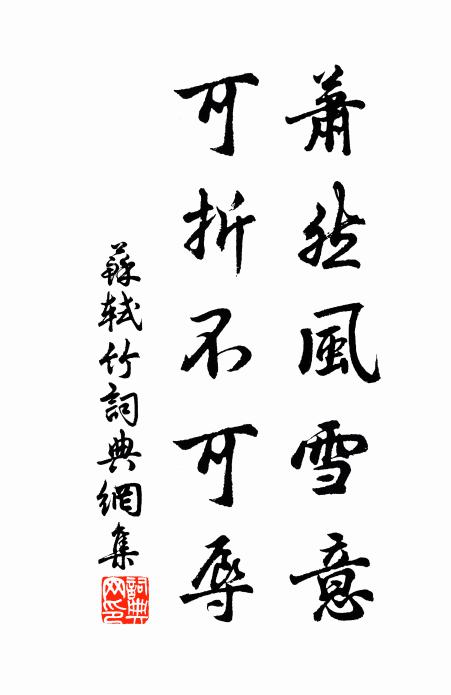 蕭然風雪意
可折不可辱
蘇軾竹詞典網集
詞典网印